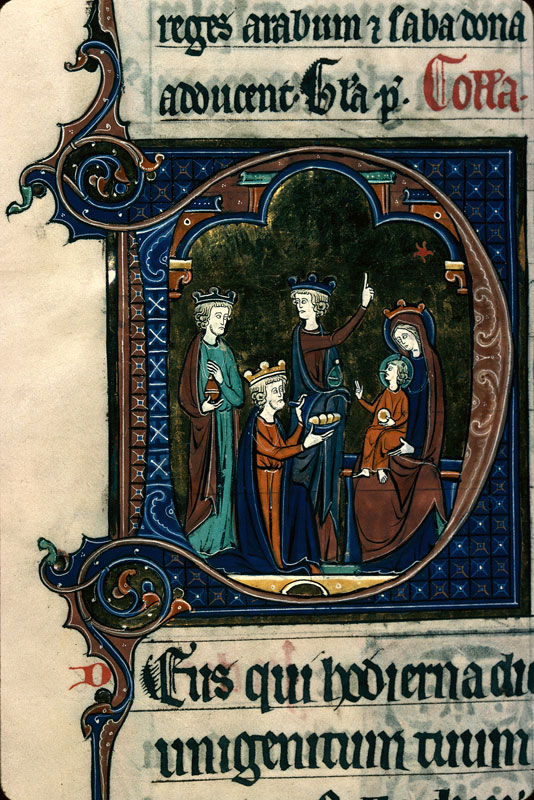 reges arabum ⁊ saba dona
adducent. Gl'a p̃. Coll'a.
D Eus qui hodierna die
unigenitum tuum